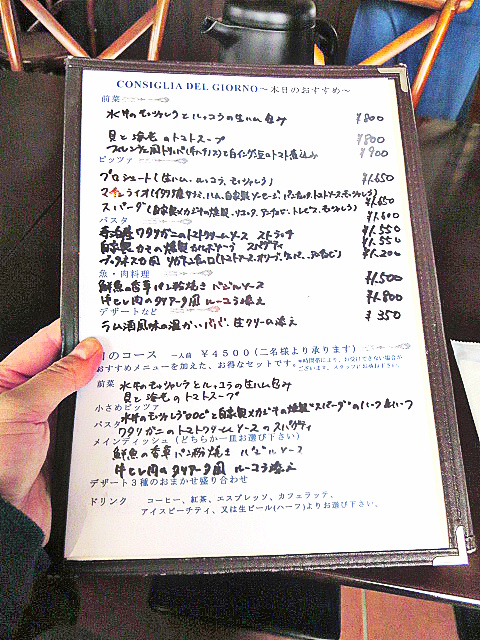 CONSIGLIA DEL GIORNO～本日のおすすめ～
前菜
水牛のモッツァレラとルッコラの生ハム包み ¥800
貝と海老のトマトスープ ¥800
フィレンツェ風トリッパ(ギアラ)と白インゲン豆のトマト煮込み ¥900
ピッツァ
プロシュート(生ハム、ルッコラ、モッツァレラ) ¥1.650
¥1.650
スパーダ(自家製メカジキの燻製、リコッタ、アンチョビ、トレビス、モッツァレラ) ¥1.600
パスタ
ワタリガニのトマトクリームソース ¥1.550
自家製 スパゲティ ¥1.550
¥1.200
魚・肉料理
鮮魚の香草パン粉焼き バジルソース ¥1.500
牛ヒレ肉のタリアータ風 ルーコラ添え ¥1.800
デザートなど
ラム酒風味の温かいババ、生クリーム添え ¥350
日のコース 一人前 ¥4500(二名様より承ります)
おすすめメニューを加えた、お得なセットです。※時間帯により、お受けできない場合が
ございます。スタッフにお尋ね下さい。
前菜 水牛のモッツァレラとルッコラの生ハム包み
貝と海老のトマトスープ
小さめピッツァ
水牛モッツァレラのDOCと自家製メカジキの燻製"スパーダ"のハーフ&ハーフ
パスタ ワタリガニのトマトクリームソースのスパゲティ
メインディッシュ(どちらか一皿お選び下さい)
鮮魚の香草パン粉焼き バジルソース
牛ヒレ肉のタリアータ風 ルーコラ添え
デザート３種のおまかせ盛り合わせ
ドリンク コーヒー、紅茶、エスプレッソ、カフェラッテ、
アイスピーチティ、又は生ビール(ハーフ)よりお選び下さい、